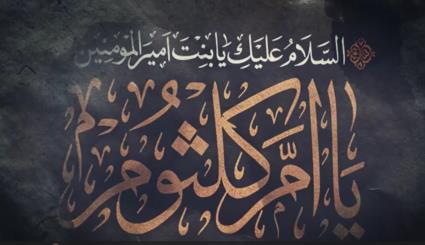 السَّلَامُ عَلَيْكِ يَا بِنْتَ اَمِيرِ الْمُؤْمِنِين
يَا اُمَّ كُلثُوم